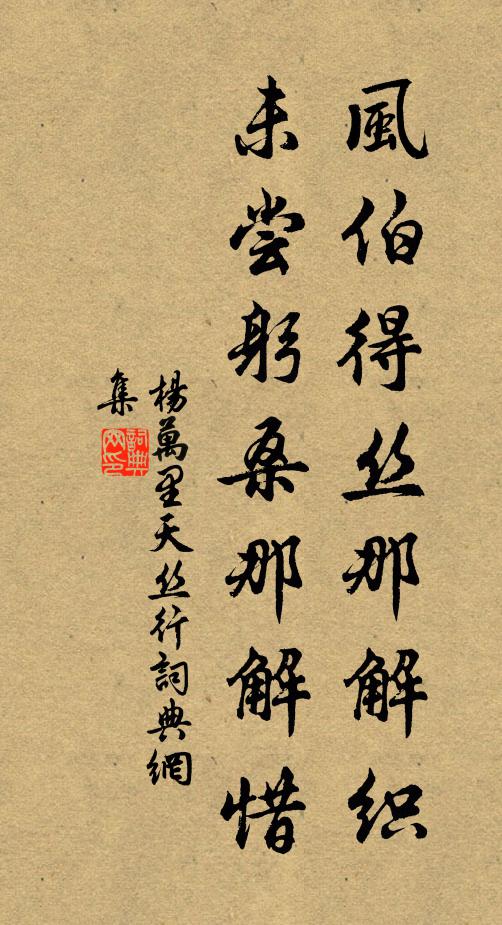 風伯得丝那解织
未尝躬桑那解惜
楊萬里天丝行詞典網
集
詞典
网印